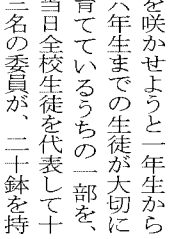 を咲かせようと一年生から
六年生までの生徒が大切に
育てているうちの一部を、
当日全校生徒を代表して十
二名の委員が、二十鉢を持